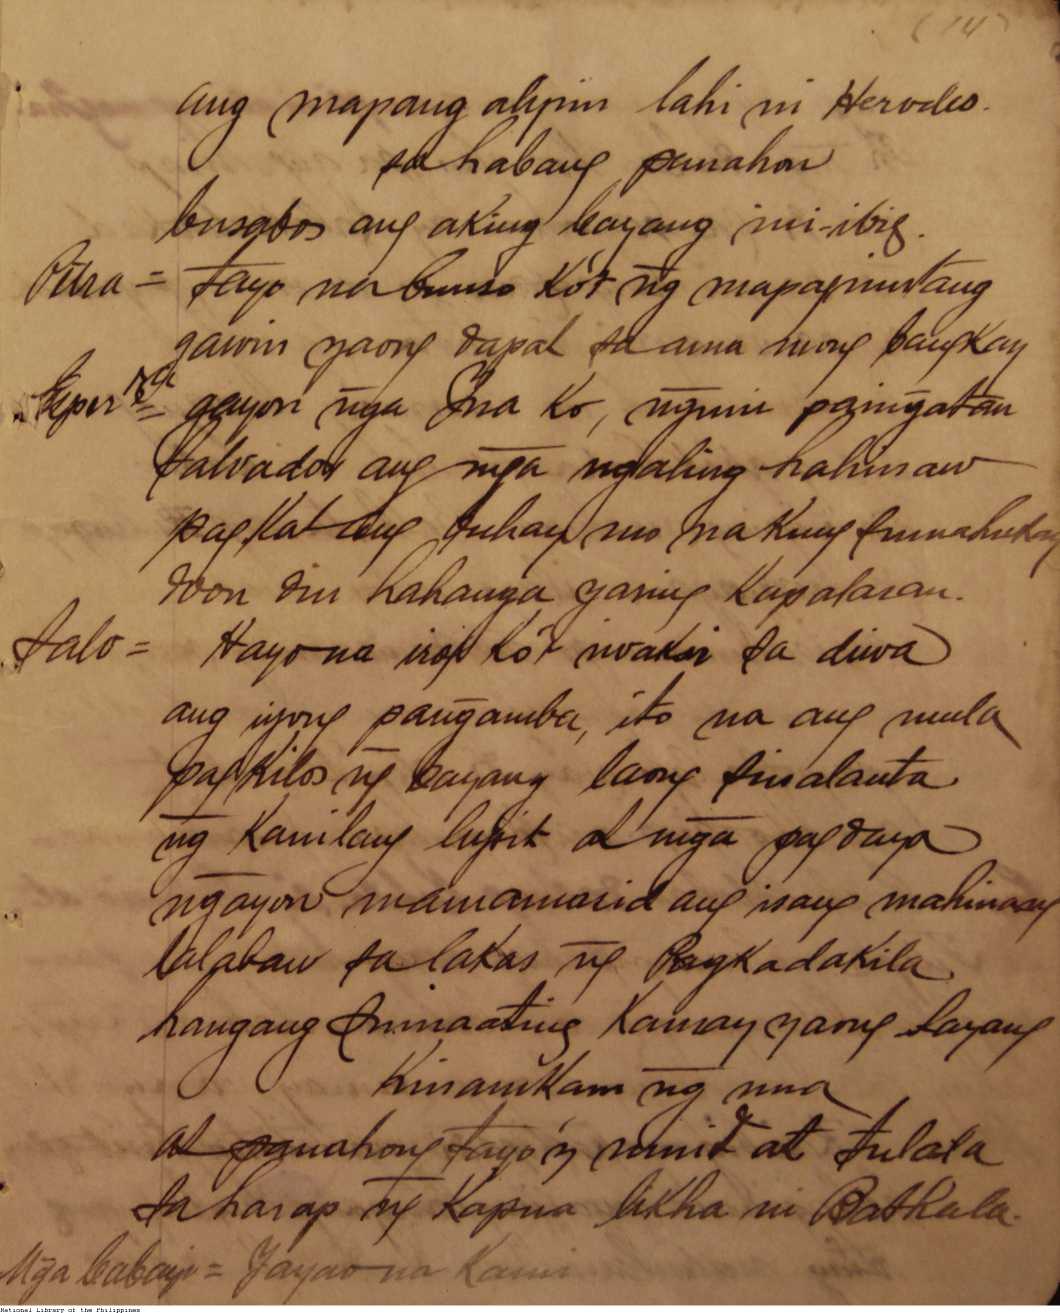 (14)
ang mapang alipin lahi ni Herodes.
sa habang panahon
busabos ang aking bayang ini-ibig.
Petra = Tayo na bunso Ko't n̄g mapapintang
gawin yaong dapat sa ama mong bangkay
gayon n̄ga Ina Ko, n̄guni pain̄gatan
Salvador ang mḡa ngaling halimaw
pagKat ang buhay mo na Kung
doon din hahanga yaring Kapalaran.
Salv = Hayo na irog Ko't iwaksi sa diwa
ang iyong pan̄gamba, ito na ang mula
pagKilos n̄g bayang laong sinalanta
n̄g Kanilang lupit at mḡa pagdaya
n̄gayon mamamasid ang isang mahinang
lalaban sa lakas n̄g PagKadaKila
hangang Kamay yaong layang
KinamKam n̄g una
at panahong tayo'y umid at tulala
sa harap n̄g Kapua likha ni Bathala.
Mḡa babayi = Yayao na Kami
National Library of the Philippines